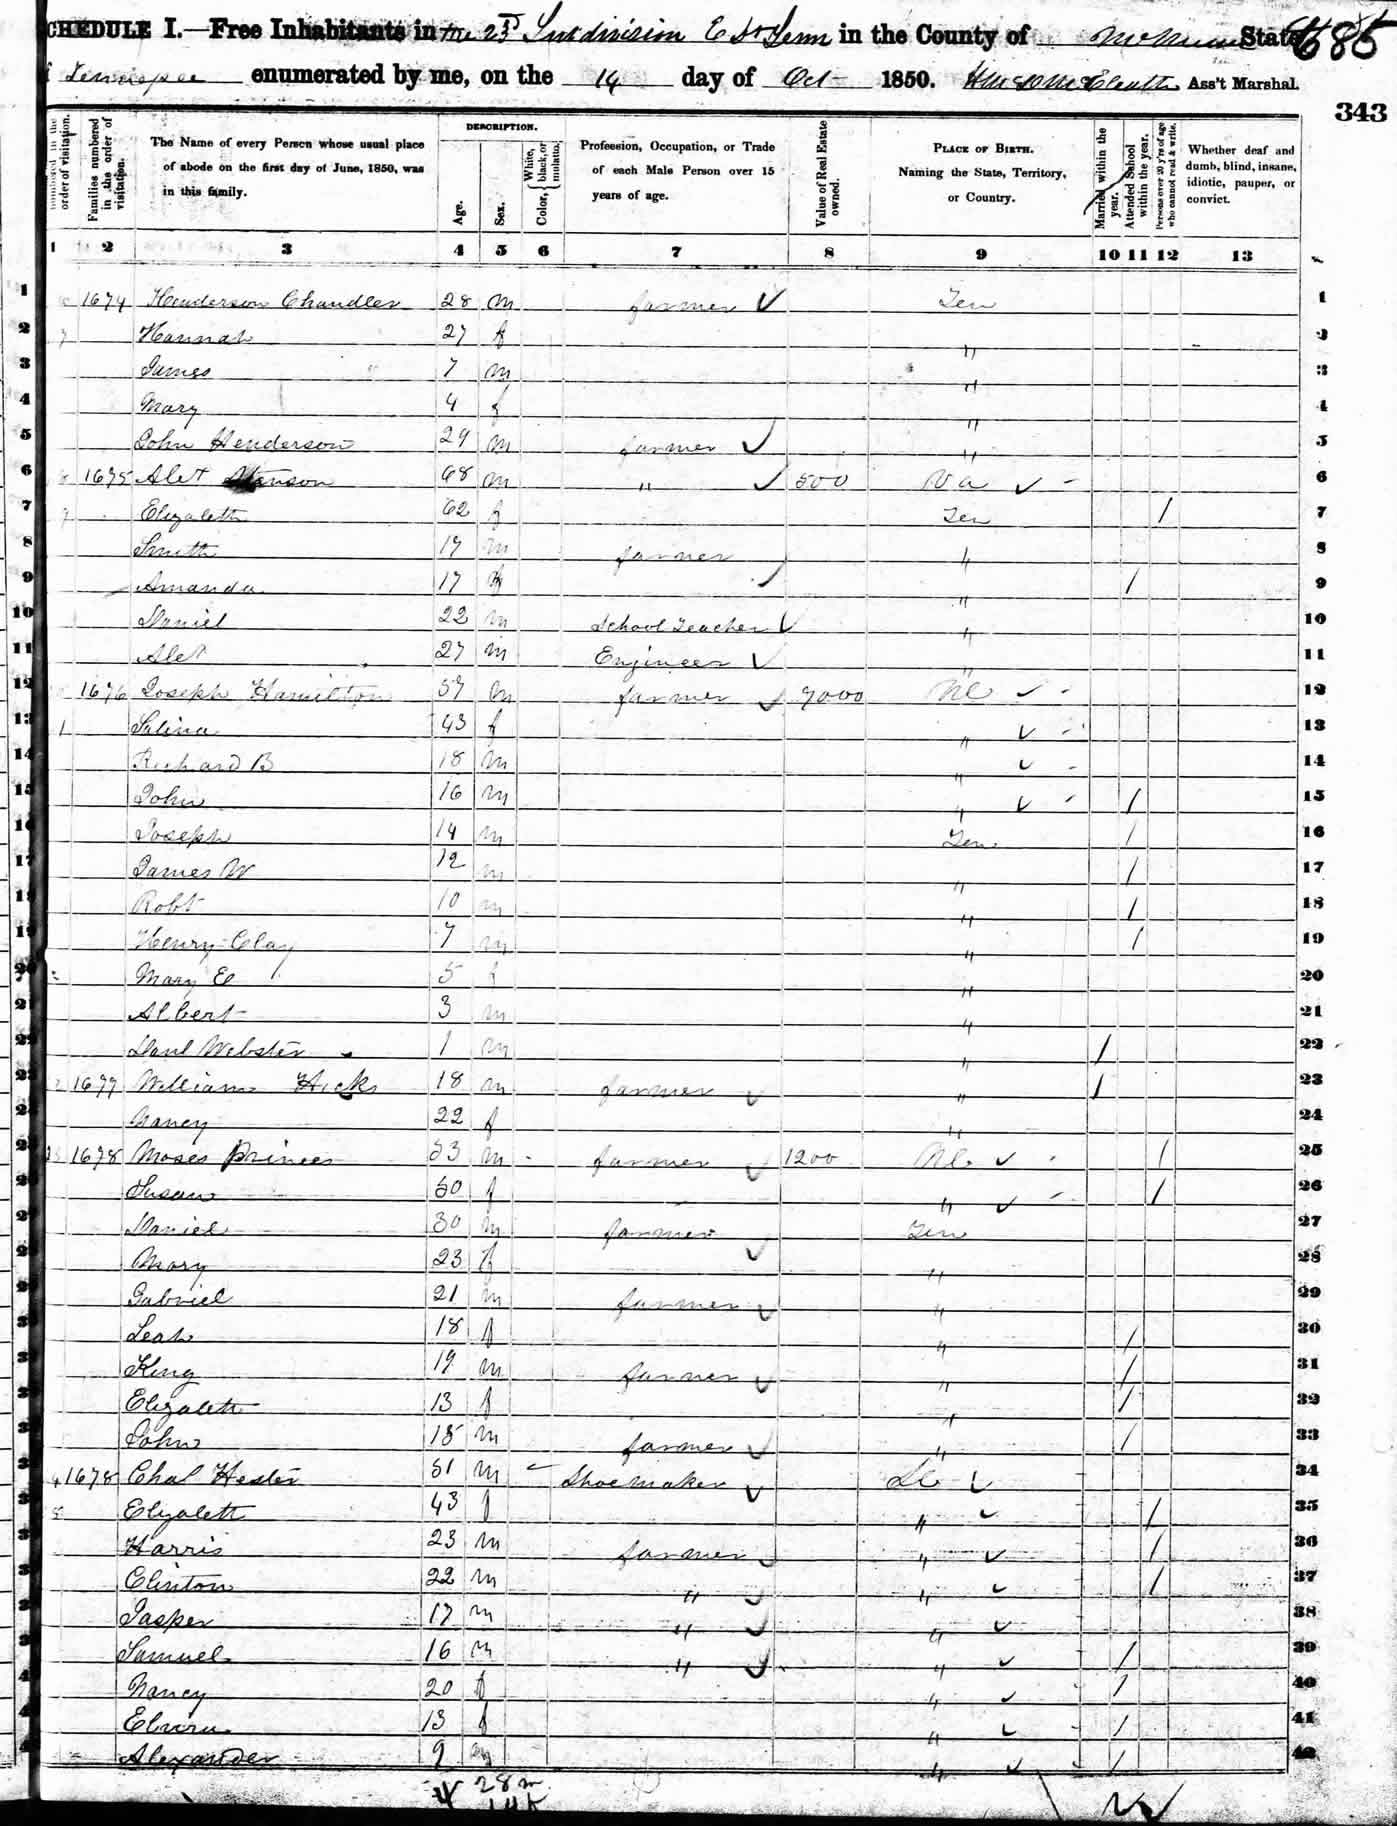 SCHEDULE I.—Free Inhabitants in the 23d Subdivision E Dt Tenn in the County of McMinn State 685
of Tennessee enumerated by me, on the 14 day of Oct 1850. Ass't Marshal.
343
DESCRIPTION.
numbered in the order of visitation.
Families numbered in the order of visitation.
The Name of every Person whose usual place of abode on the first day of June, 1850, was in this family.
Age.
Sex.
Color, { White, black, or mulatto.
Profession, Occupation, or Trade of each Male Person over 15 years of age.
Value of Real Estate owned.
PLACE OF BIRTH. Naming the State, Territory, or Country.
Married within the year.
Attended School within the year.
Persons over 20 y'rs of age who cannot read & write.
Whether deaf and dumb, blind, insane, idiotic, pauper, or convict.
1 2 3 4 5 6 7 8 9 10 11 12 13
1 1674 Henderson Chandler 28 m farmer ✓ Ten 1
2 Hannah 27 f " 2
3 James 7 m " 3
4 Mary 4 f " 4
5 John Henderson 29 m farmer ✓ " 5
6 1675 Alex 68 m " ✓ 500 Va ✓ - 6
7 Elizabeth 62 f Ten / 7
8 Smith 17 m farmer " 8
9 Amanda 17 f " / 9
10 Daniel 22 m School Teacher ✓ " 10
11 Alex 27 m Engineer ✓ " 11
12 1676 Joseph Hamilton 57 m farmer ✓ 7000 NC ✓ - 12
13 Salina 43 f " ✓ - 13
14 Richard B 18 m " ✓ - 14
15 John 16 m " ✓ - / 15
16 Joseph 14 m Ten / 16
17 James W 12 m " / 17
18 Robt 10 m " / 18
19 Henry Clay 7 m " / 19
20 Mary E 5 f " 20
21 Albert 3 m " 21
22 Danl Webster 1 m " / 22
23 1677 William Hicks 18 m farmer ✓ " / 23
24 Nancy 22 f " 24
25 1678 Moses Princes 53 m farmer ✓ 1200 NC ✓ - / 25
26 Susan 50 f " ✓ - / 26
27 Daniel 30 m farmer Ten 27
28 Mary 23 f ✓ " 28
29 Gabriel 21 m farmer ✓ " 29
30 Leah 18 f " / 30
31 King 19 m farmer ✓ " / 31
32 Elizabeth 13 f " / 32
33 John 15 m farmer ✓ " / 33
34 1678 Chal Hester 51 m Shoemaker ✓ SC ✓ 34
35 Elizabeth 43 f " ✓ / 35
36 Harris 23 m farmer ✓ " ✓ / 36
37 Clinton 22 m " ✓ " ✓ / 37
38 Jasper 17 m " ✓ " ✓ 38
39 Samuel 16 m " ✓ " ✓ / 39
40 Nancy 20 f " ✓ / 40
41 Elvira 13 f " ✓ / 41
42 Alexander 9 m " ✓ / 42
28 m
14 f